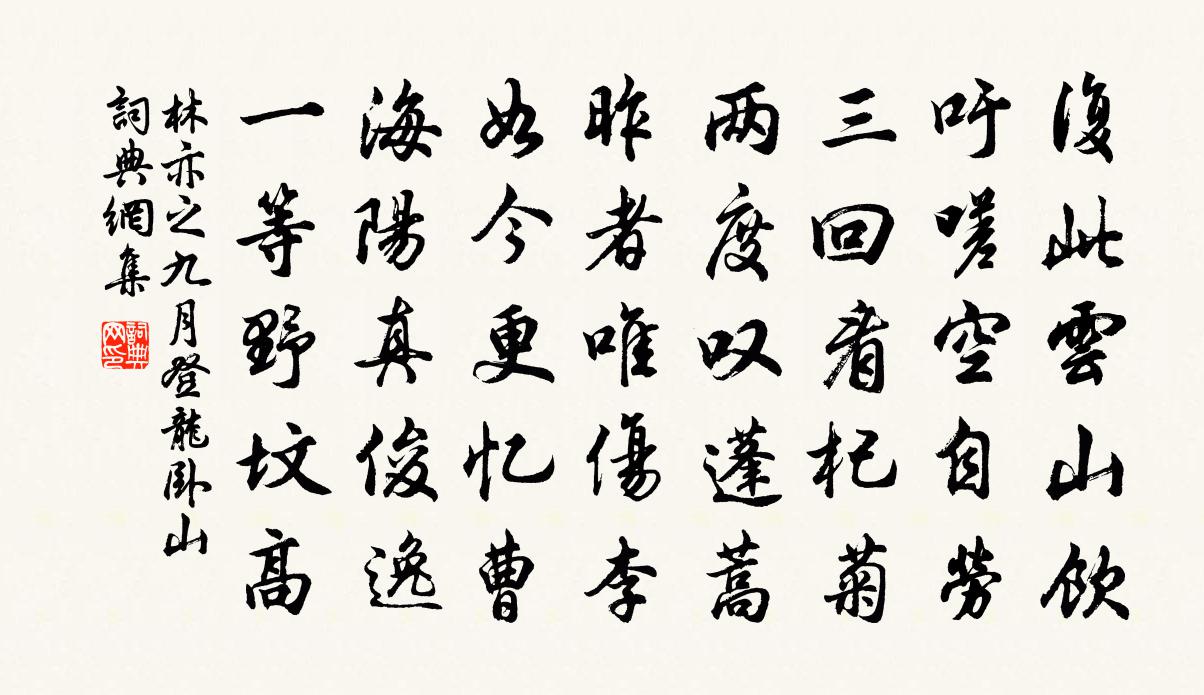 復此雲山飲
吁嗟空自勞
三回看杞菊
两度叹蓬蒿
昨者唯傷李
如今更忆曹
海陽真俊逸
一等野坟高
林亦之九月登龍卧山
詞典網集
詞典网印